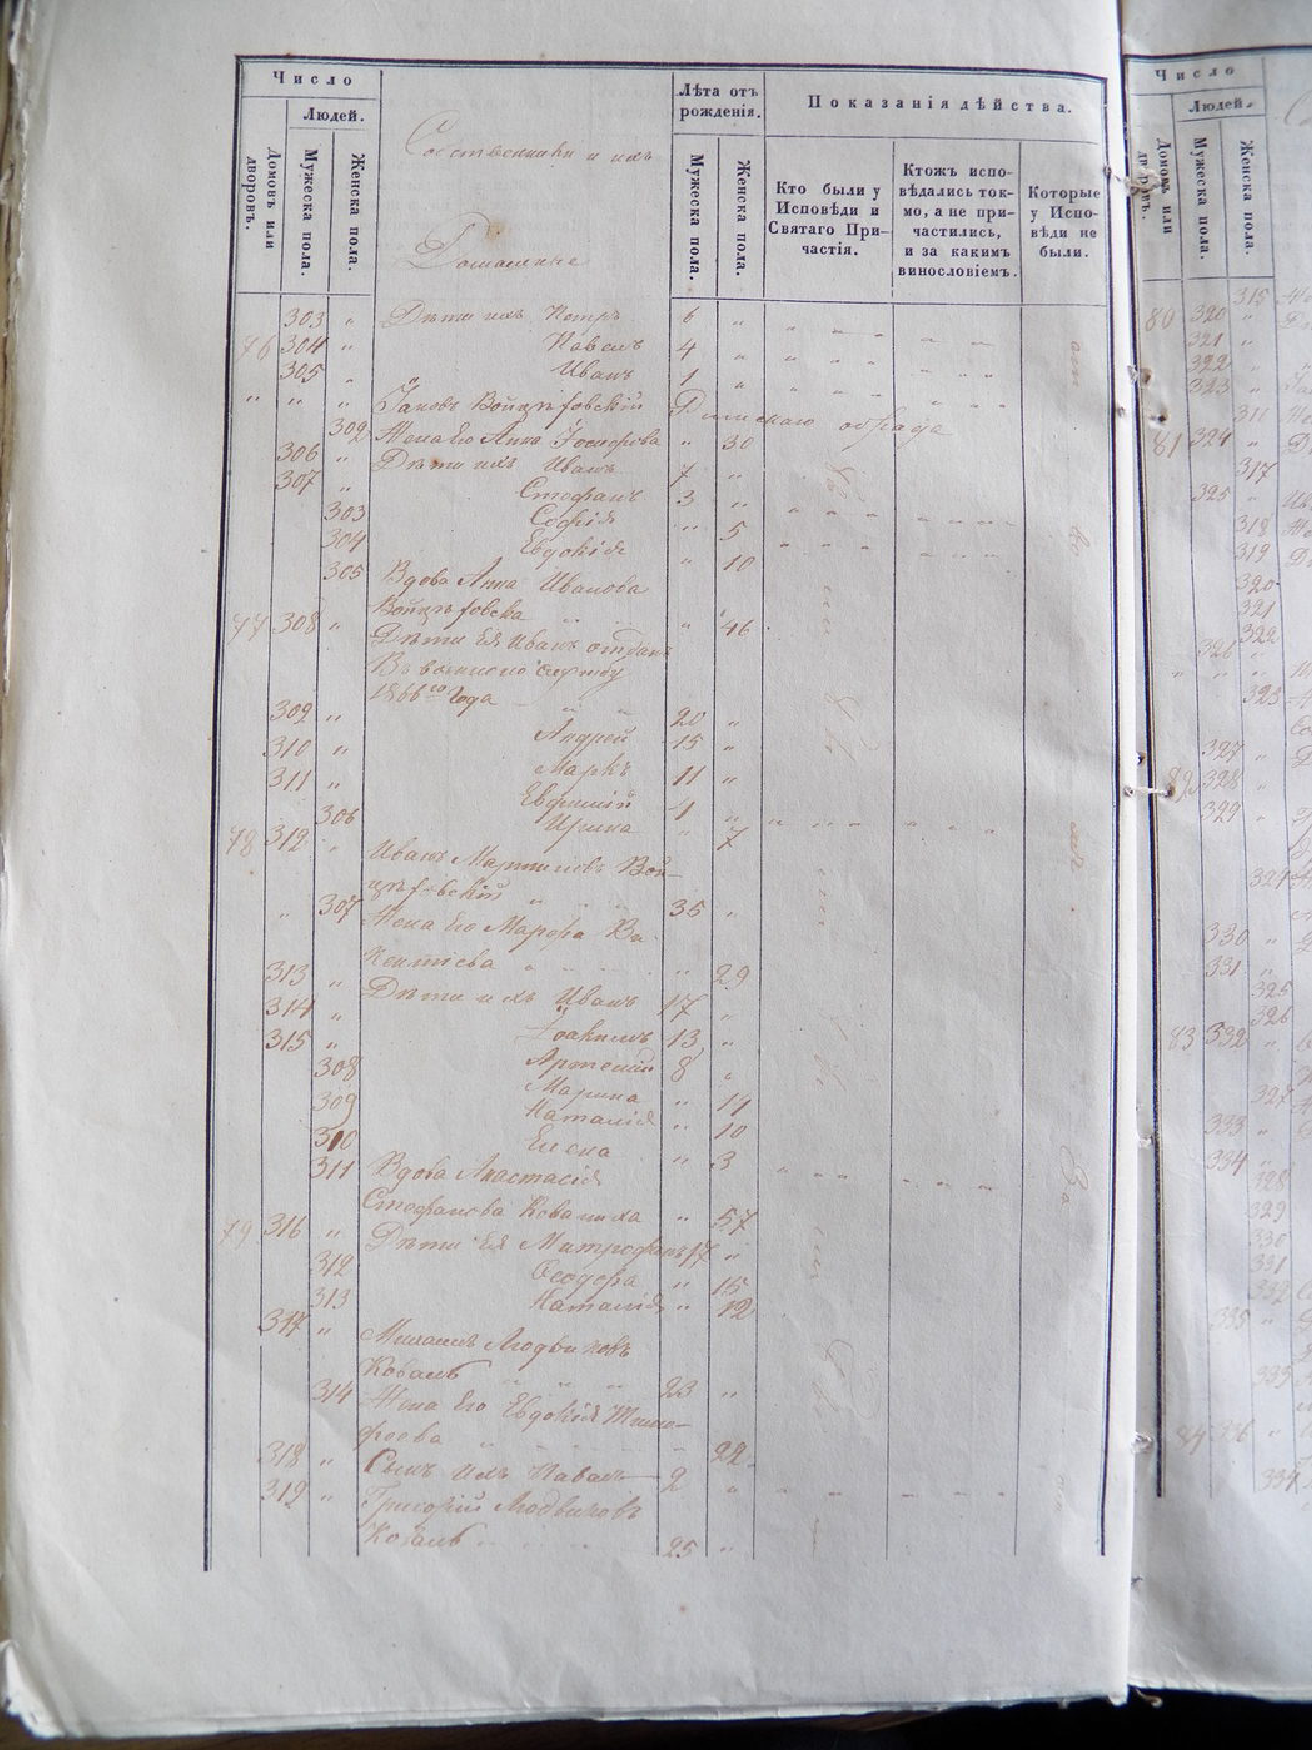 Число
Людей.
Домовъ или дворовъ.
Мужеска пола.
Женска пола.
и ихъ
Домашніе
Лѣта отъ рожденія.
Мужеска пола.
Женска пола.
Показанія дѣйства.
Кто были у Исповѣди и Святаго При-
частія.
Ктожъ испо-
вѣдались ток-
мо, а не при-
частились,
и за какимъ
винословіемъ.
Которые
у Испо-
вѣди не
были.
303 „ Дѣти ихъ Петръ 6 „
76 304 „ Павелъ 4 „
305 „ Иванъ 1 „
„ „ „ Іаковъ Римскаго обряда
302 Жена Его Анна Іосифова „ 30
306 „ Дѣти ихъ Иванъ 7 „
307 „ Стефанъ 3 „
303 Софія „ 5
304 Евдокія „ 10
305 Вдова Анна Иванова
„ 46
77 308 „ Дѣти Ея Иванъ отданъ
Въ военную службу
1866го Года
309 „ 20 „
310 „ Андрей 15 „
311 „ Маркъ 11 „
Евфимій 4 „
306 Ирина „ 7
78 312 „ Иванъ Мартиновъ Вой-
35 „
„ 307 Жена Его Марфа Ви-
кентіева „ 29
313 „ Дѣти ихъ Иванъ 17 „
314 „ Іоакимъ 13 „
315 „ Артемій 8 „
308 Марина „
309 Наталія „ 10
310 Елена „ 3
311 Вдова Анастасія
Стефанова „ 57
79 316 „ Дѣти Ея Митрофанъ 17 „
312 Ѳеодора „ 15
313 Наталія „ 12
317 „ Людвиковъ
Коваль 23 „
314 Жена Его Евдокія Тимо-
феева „ 22
318 „ Сынъ ихъ Павелъ 2 „
319 „ Григорій Людвиковъ
Коваль 25 „
Число
Людей.
Домовъ или дворовъ.
Мужеска пола.
Женска пола.
315
80 320 „
321 „
322 „
323 „
311
81 324 „
317
325 „
318
319
320
321
322
326 „
323
327 „
82 328 „
329 „
324
330 „
331 „
325
326
83 332 „
327
333 „
334 „
328
329
330
331
332
335 „
333
84 336 „
334